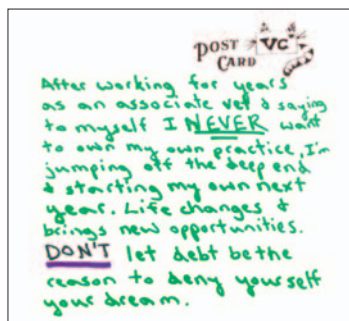 POST CARD VC
After working for years
as an associate vet & saying
to myself I NEVER want
to own my own practice, I'm
jumping off the deep end
& starting my own next
year. Life changes &
brings new opportunities.
DON'T let debt be the
reason to deny yourself
your dream.